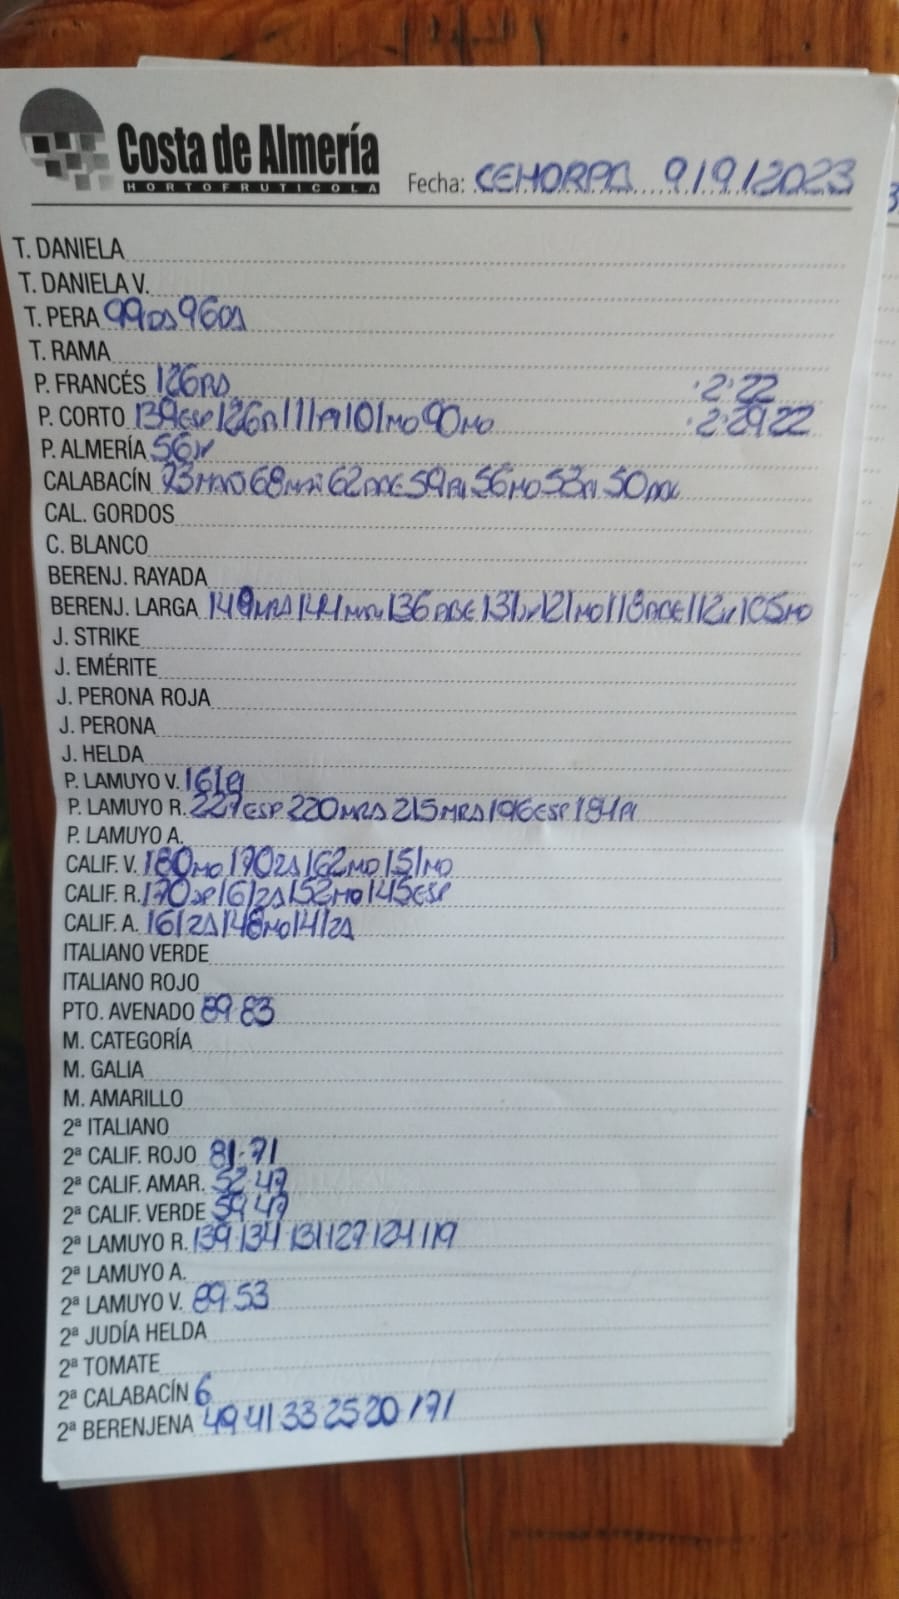 Costa de Almería
HORTOFRUTICOLA
Fecha: CEHORPA 9/9/2023
T. DANIELA
T. DANIELA V.
T. PERA 99DS 96DS
T. RAMA
P. FRANCÉS 126
2'22
P. CORTO 139ESP 126 111PI 101MO 90MO
2'29'22
P. ALMERÍA 56
CALABACÍN 68 62DCE 59PI 56MO 53PI 50
CAL. GORDOS
C. BLANCO
BERENJ. RAYADA
BERENJ. LARGA 149MRA 144 136DCE 131 121MO 118DCE 112 105MO
J. STRIKE
J. EMÉRITE
J. PERONA ROJA
J. PERONA
J. HELDA
P. LAMUYO V. 161PI
P. LAMUYO R. 227ESP 220MRA 215MRA 196ESP 184PI
P. LAMUYO A.
CALIF. V. 180MO 170ZA 162MO 151MO
CALIF. R. 170 161ZA 152MO 145ESP
CALIF. A. 161ZA 148MO 141ZA
ITALIANO VERDE
ITALIANO ROJO
PTO. AVENADO 89-83
M. CATEGORÍA
M. GALIA
M. AMARILLO
2ª ITALIANO
2ª CALIF. ROJO 81-71
2ª CALIF. AMAR. 52-47
2ª CALIF. VERDE 59-47
2ª LAMUYO R. 139 134 131 127 124 119
2ª LAMUYO A.
2ª LAMUYO V. 89-53
2ª JUDÍA HELDA
2ª TOMATE
2ª CALABACÍN 6
2ª BERENJENA 49 41 33 25 20 171